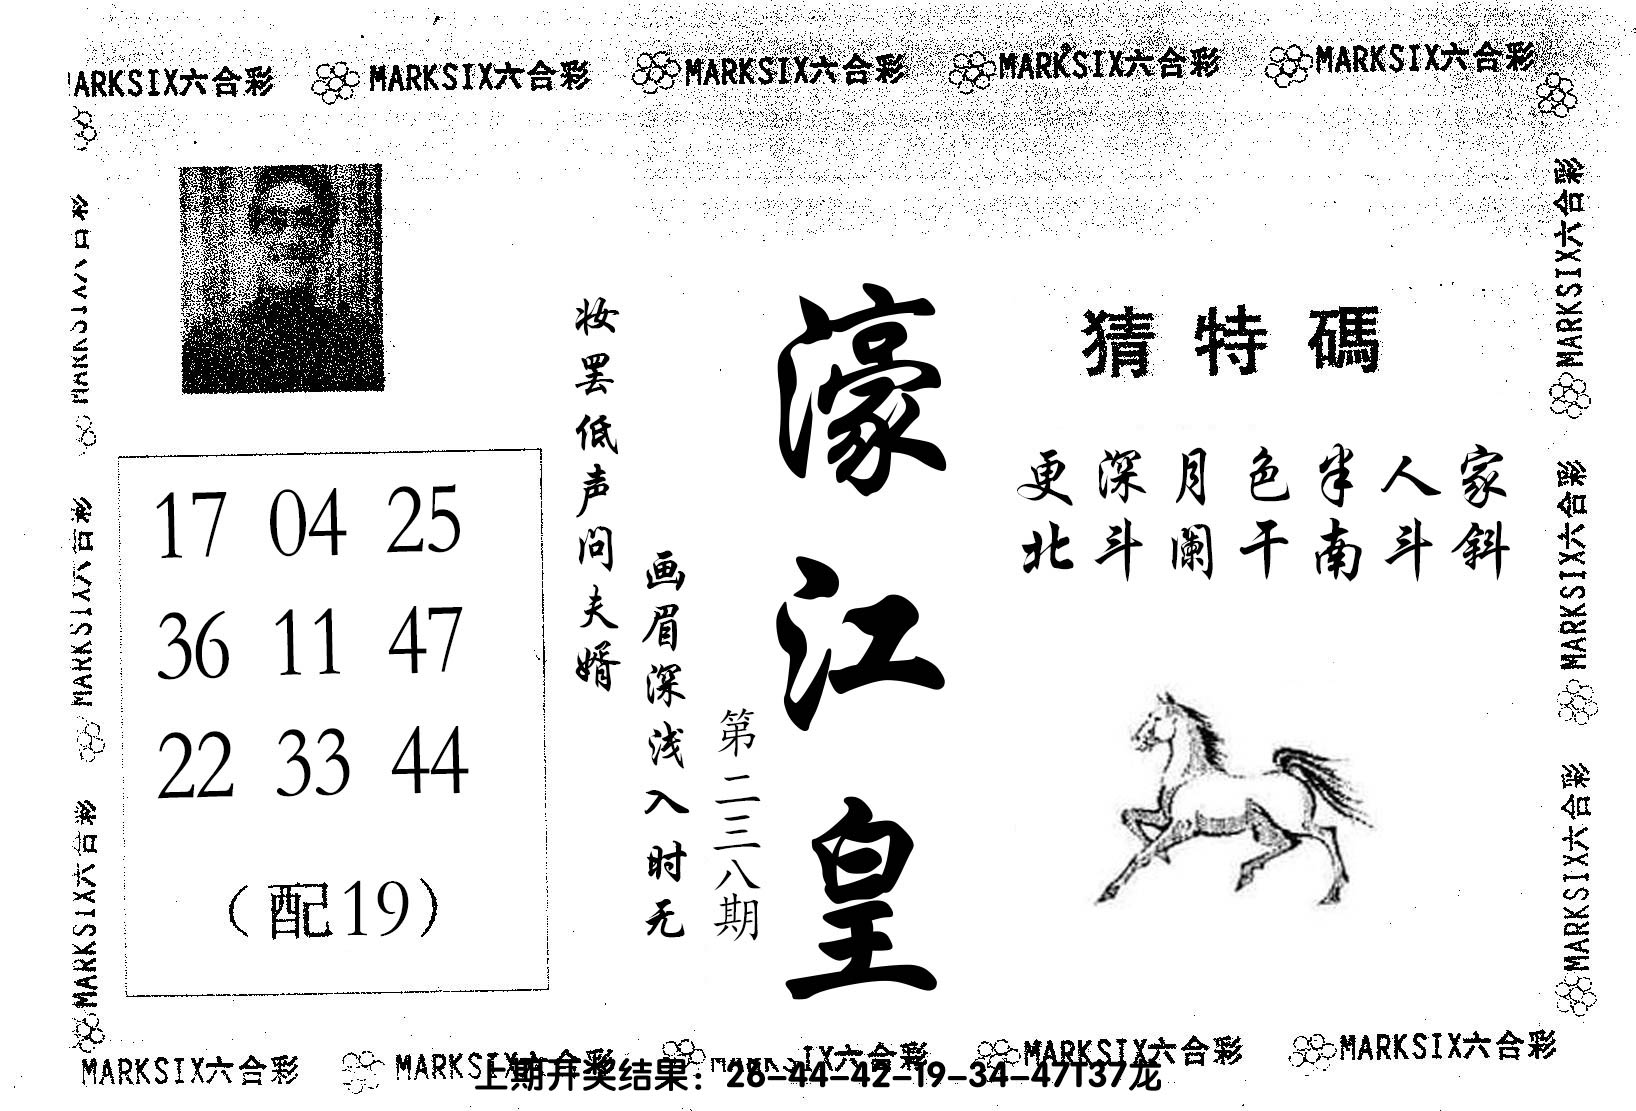 MARKSIX六合彩 MARKSIX六合彩 MARKSIX六合彩 MARKSIX六合彩 MARKSIX六合彩
MARKSIX六合彩
MARKSIX六合彩
MARKSIX六合彩
17 04 25
36 11 47
22 33 44
(配19)
妆罢低声问夫婿
画眉深浅入时无
第二三八期
濠江皇
猜特碼
更深月色半人家
北斗阑干南斗斜
MARKSIX六合彩
MARKSIX六合彩
MARKSIX六合彩
MARKSIX六合彩 MARKSIX六合彩 IX六合彩 MARKSIX六合彩 MARKSIX六合彩
上期开奖结果：26-44-42-19-34-47T37龙